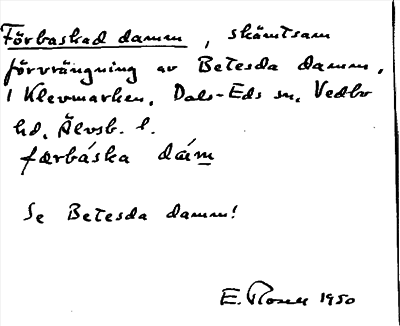 Förbaskad damm, skämtsam
förvrängning av Betesda damm,
i Klevmarken, Dals-Eds sn, Vedbo
hd, Älvsb. l.
færbáska dám
Se Betesda damm!
E. Rosell 1950